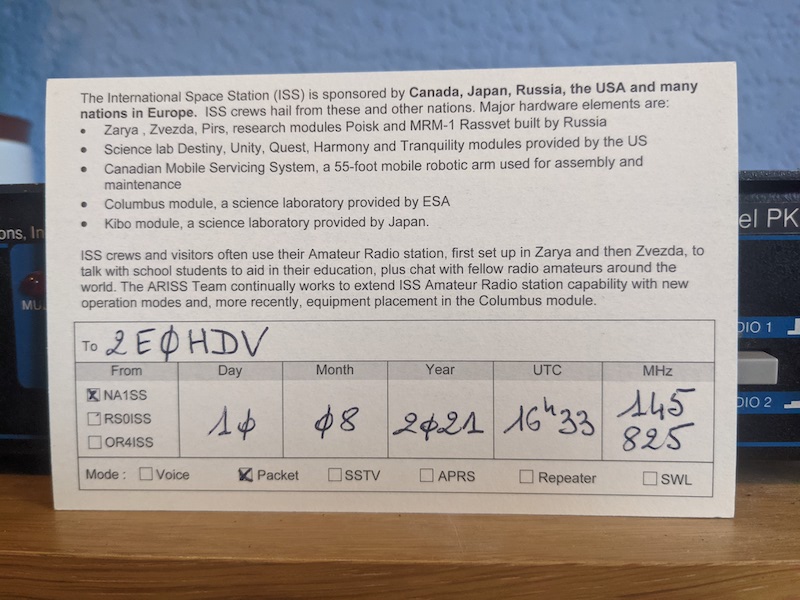 The International Space Station (ISS) is sponsored by Canada, Japan, Russia, the USA and many
nations in Europe. ISS crews hail from these and other nations. Major hardware elements are:
• Zarya , Zvezda, Pirs, research modules Poisk and MRM-1 Rassvet built by Russia
• Science lab Destiny, Unity, Quest, Harmony and Tranquility modules provided by the US
• Canadian Mobile Servicing System, a 55-foot mobile robotic arm used for assembly and
maintenance
• Columbus module, a science laboratory provided by ESA
• Kibo module, a science laboratory provided by Japan.
ISS crews and visitors often use their Amateur Radio station, first set up in Zarya and then Zvezda, to
talk with school students to aid in their education, plus chat with fellow radio amateurs around the
world. The ARISS Team continually works to extend ISS Amateur Radio station capability with new
operation modes and, more recently, equipment placement in the Columbus module.
To 2EØHDV
From Day Month Year UTC MHz
NA1SS
RS0ISS
OR4ISS
1Ø Ø8 2Ø21 16h33 145
825
Mode : Voice Packet SSTV APRS Repeater SWL
ons, In
MU
el PK
DIO 1
DIO 2